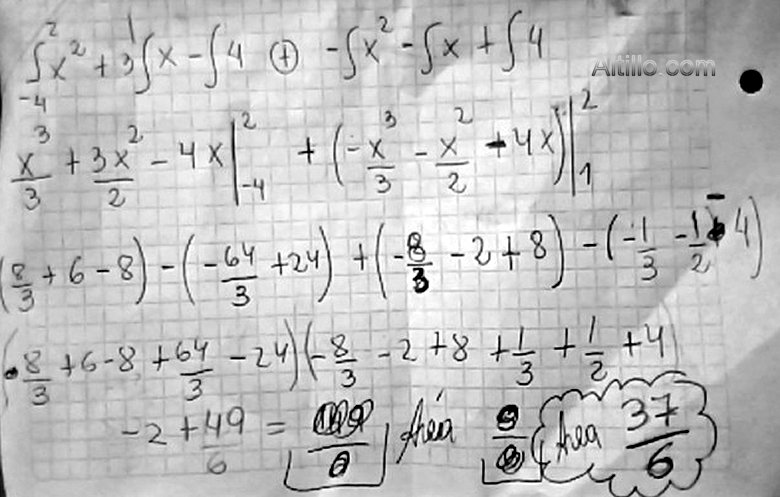 ∫₋₄² x² + 3∫¹ x − ∫ 4 ⊕ −∫ x² − ∫ x + ∫ 4
Altillo.com
x³/3 + 3x²/2 − 4x |₋₄² + (−x³/3 − x²/2 + 4x) |₁²
(8/3 + 6 − 8) − (−64/3 + 24) + (−8/3 − 2 + 8) − (−1/3 − 1/2 − 4)
(8/3 + 6 − 8 + 64/3 − 24) (−8/3 − 2 + 8 + 1/3 + 1/2 + 4)
−2 + 49/6 = Área Área 37/6